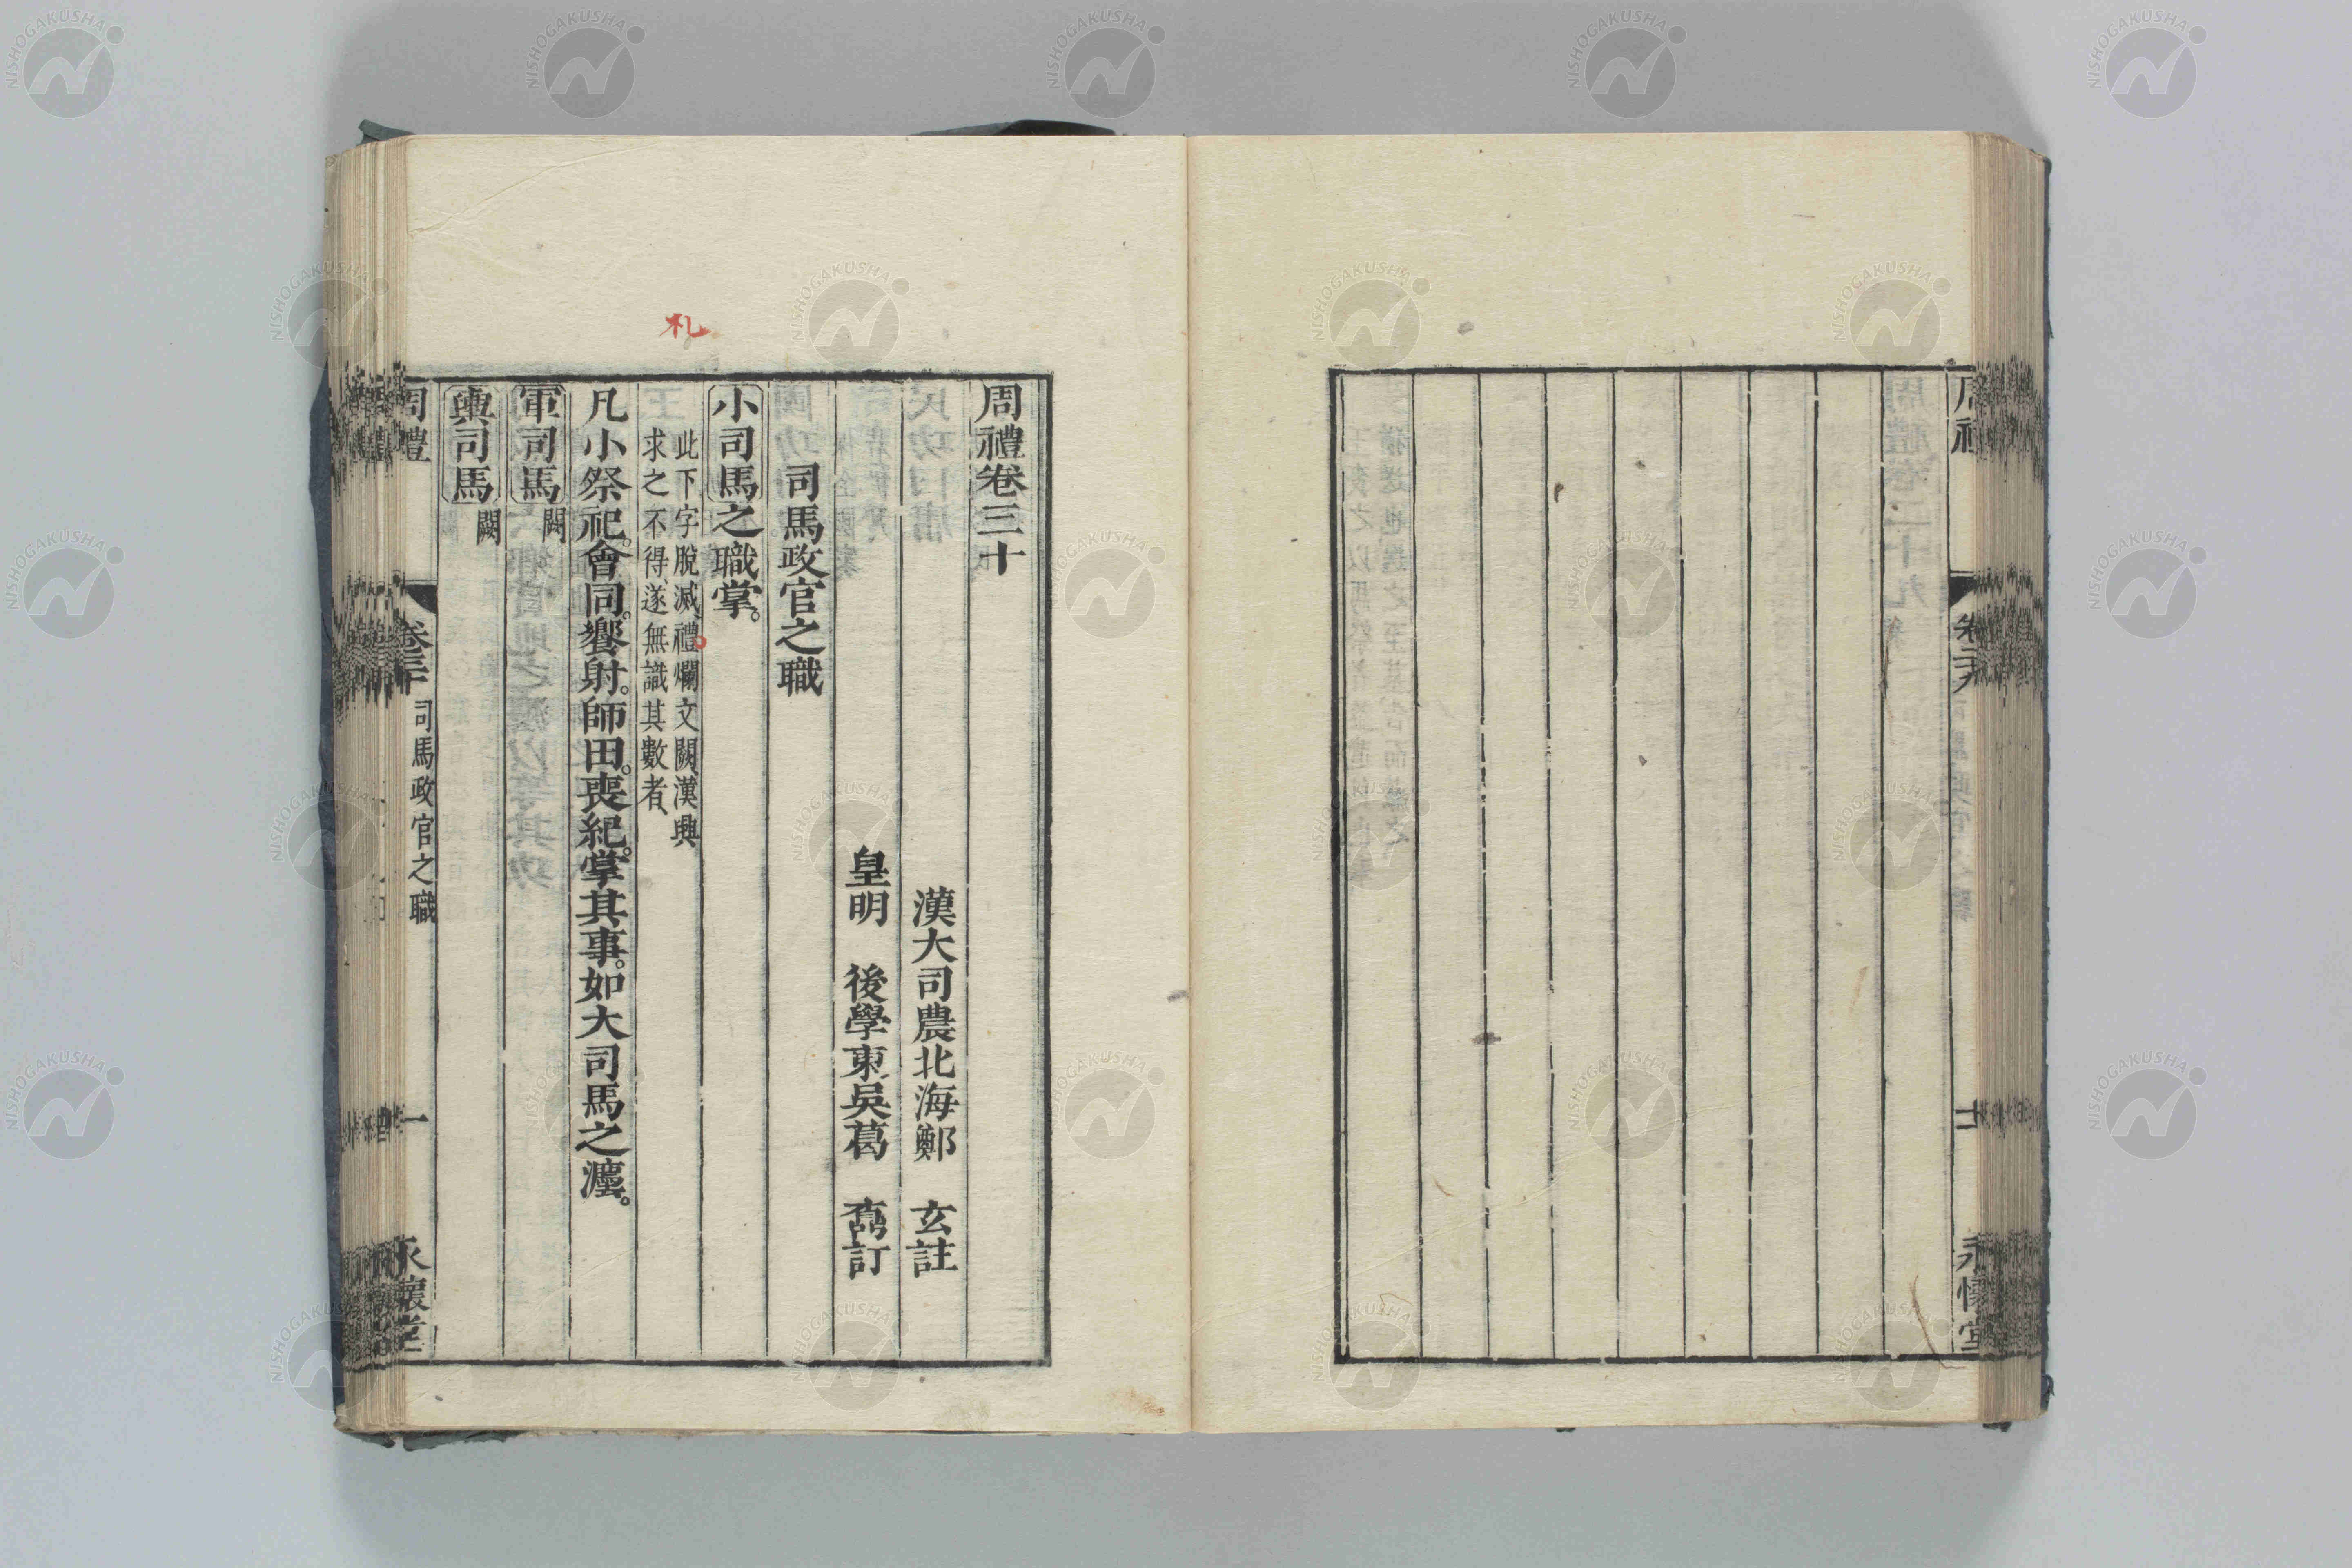 周禮卷三十
漢大司農北海鄭　玄註
皇明　後學東吳葛　鼒訂
司馬政官之職
小司馬之職掌。
此下字脫滅。禮爛文闕、漢興
求之不得、遂無識其數者、
凡小祭祀。會同。饗射。師田。喪紀。掌其事。如大司馬之灋。
軍司馬闕
輿司馬闕
周禮　卷三十　司馬政官之職　一　永懷堂
札
周禮　卷二十九　十一　永懷堂
NISHOGAKUSHA